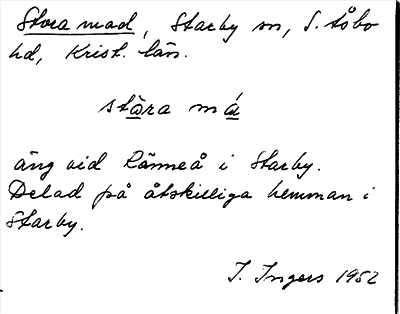 Stora mad, Starby sn, S. Åsbo
hd, Krist. län.
stàra má
äng vid Rönneå i Starby.
Delad på åtskilliga hemman i
Starby.
I. Ingers 1952